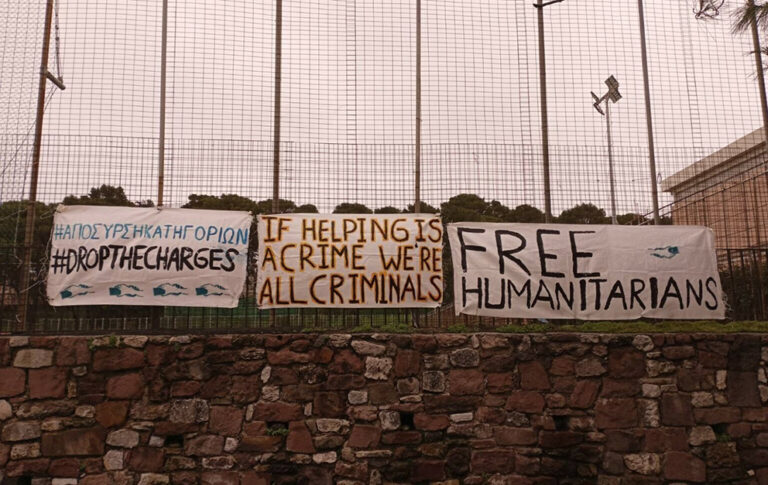 #ΑΠΟΣΥΡΣΗΚΑΤΗΓΟΡΙΩΝ
#DROPTHECHARGES
IF HELPING IS
A CRIME WE'RE
ALL CRIMINALS
FREE
HUMANITARIANS